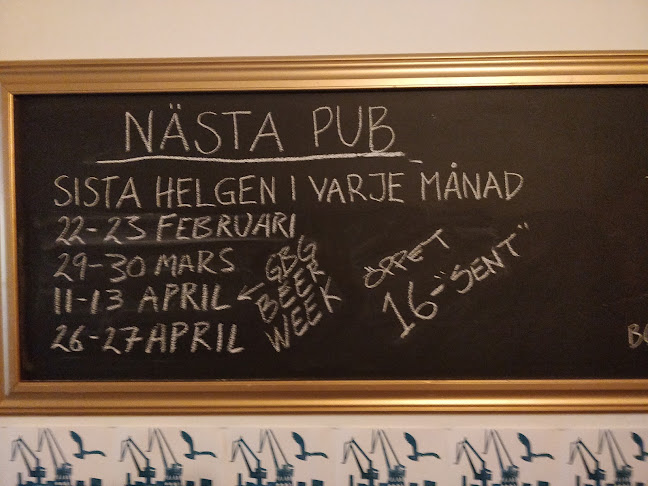 NÄSTA PUB
SISTA HELGEN I VARJE MÅNAD
22-23 FEBRUARI
29-30 MARS
11-13 APRIL ←
26-27 APRIL
GBG
BEER
WEEK
ÖPPET
16-"SENT"